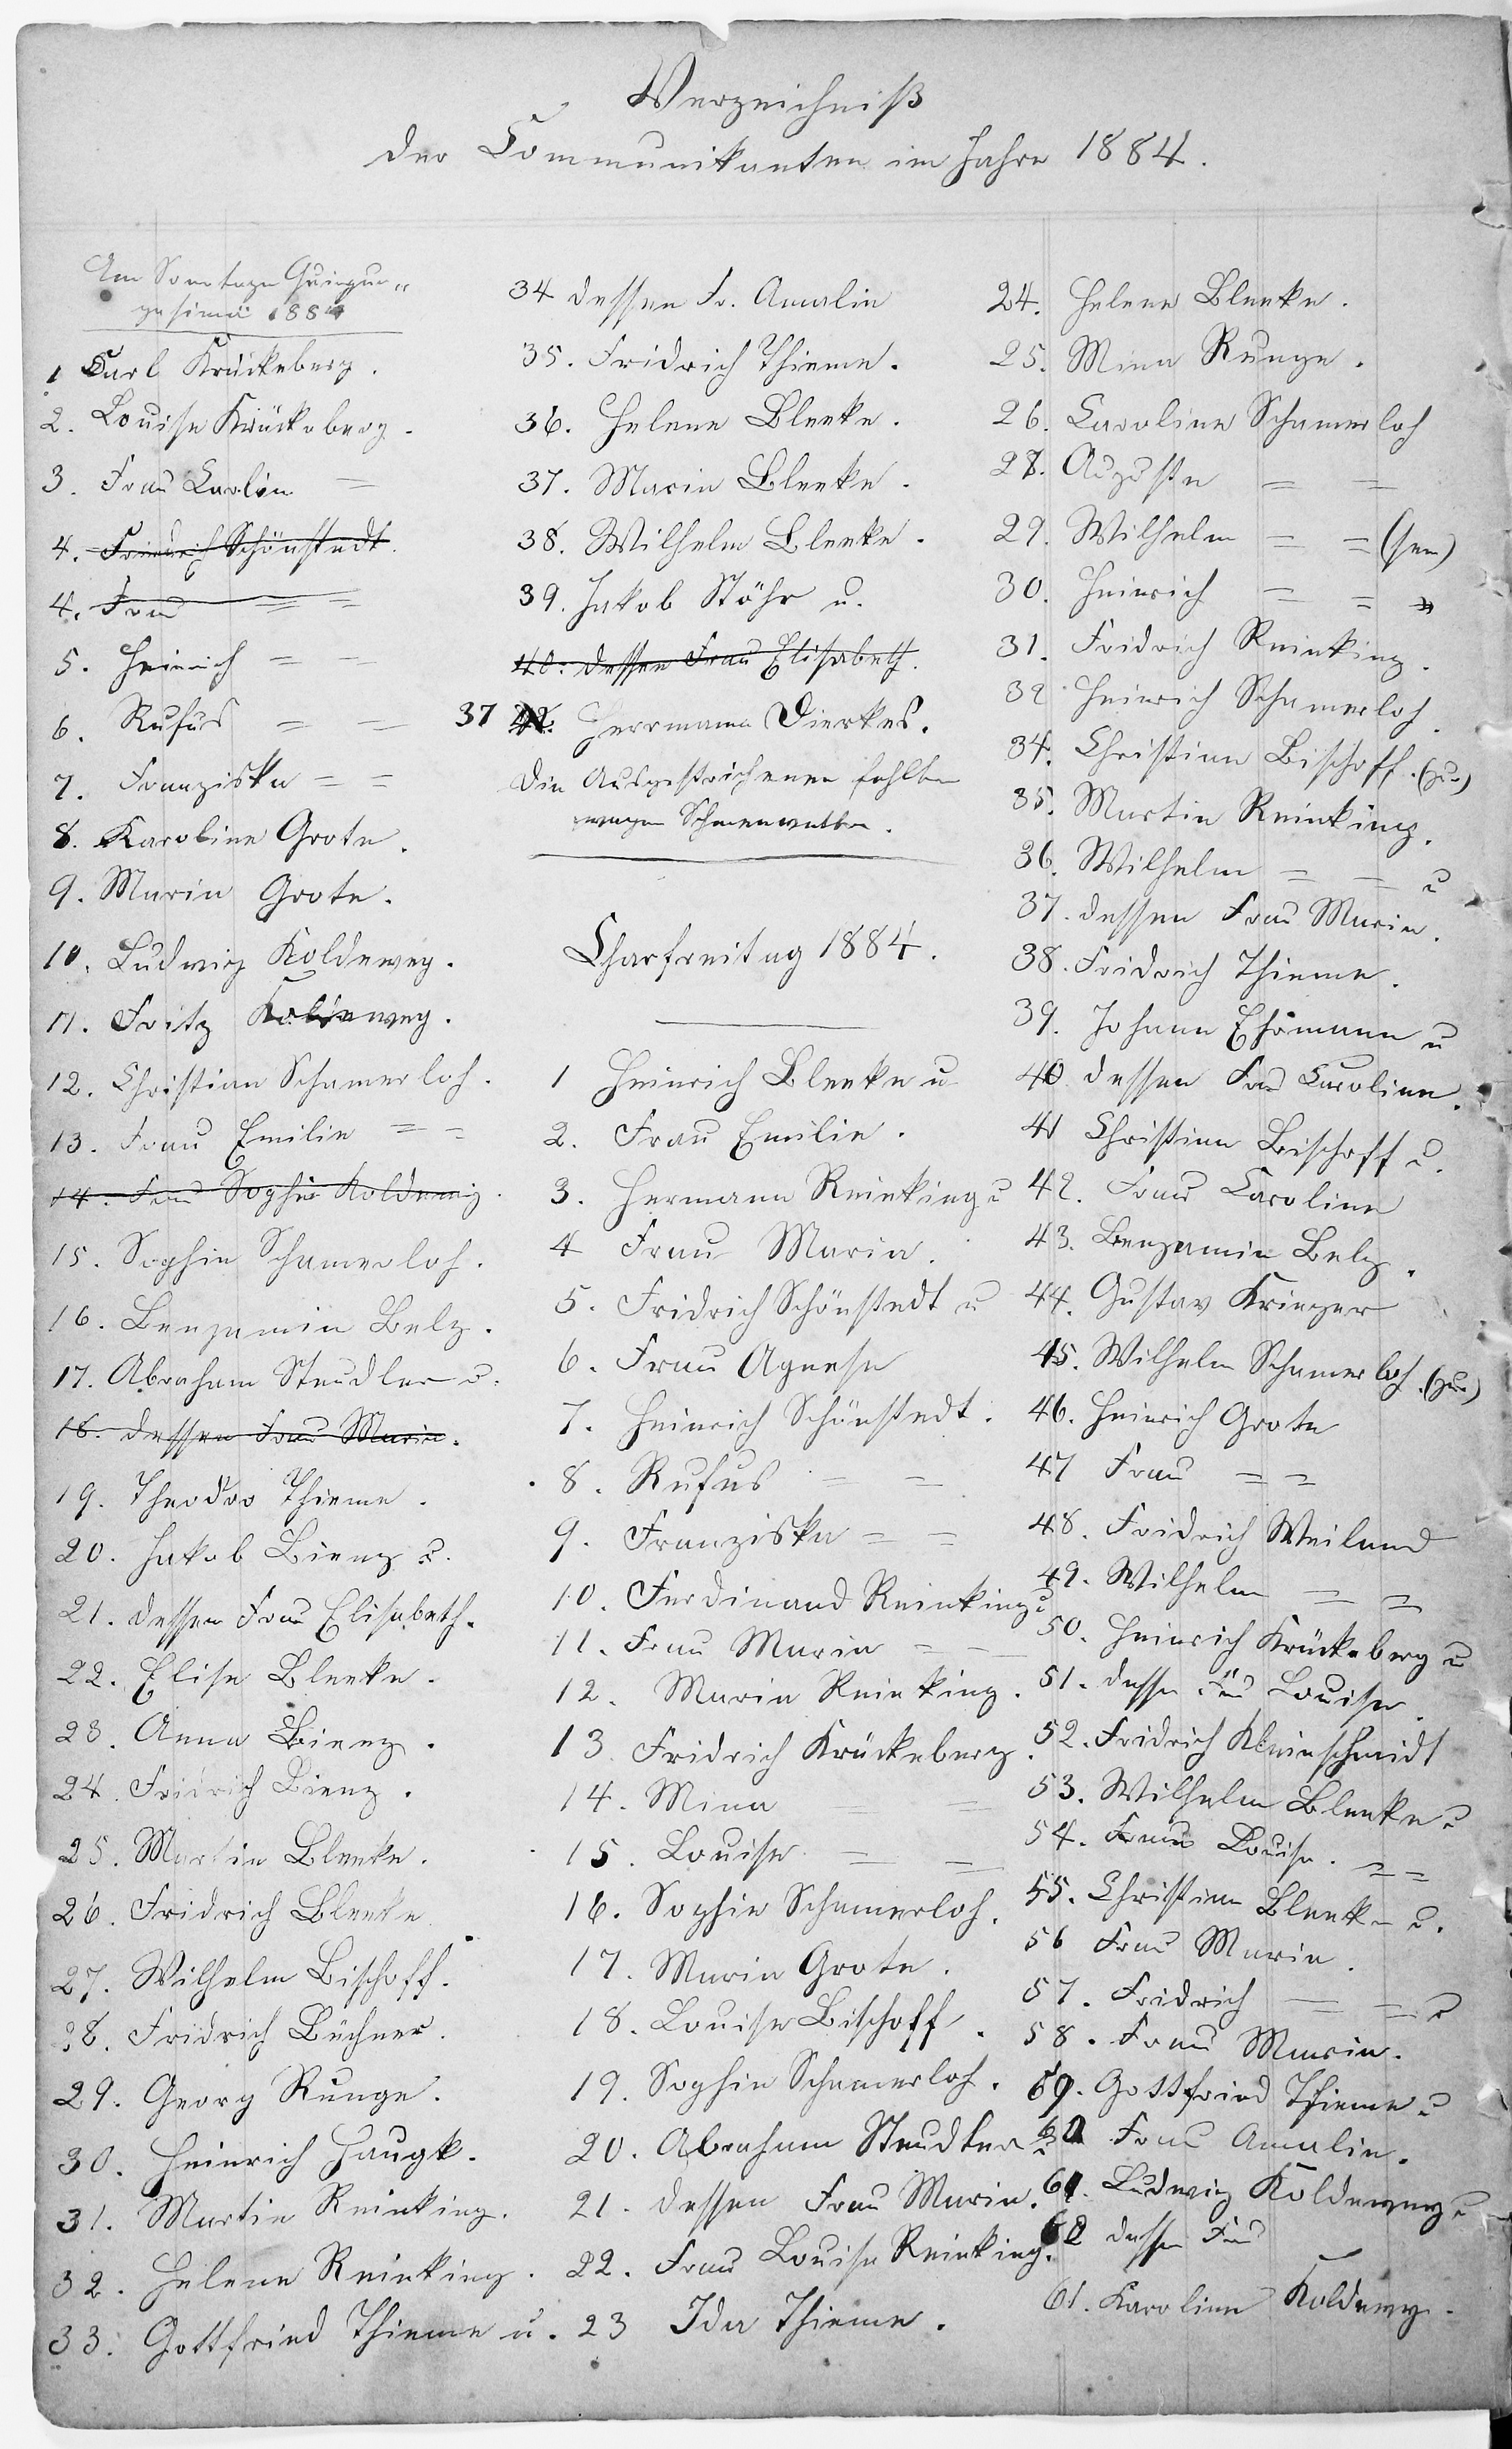 Verzeichniß
der Communikanten im Jahre 1884.
Am Sonntage Quinqua„
gesimä 1884
1 Carl Krückeberg.
2. Louise Krückeberg.
3. Frau Carolin =
4. Friedrich Schönstedt.
4. Frau = =
5. Heinrich = =
6. Rufus = =
7. Franziska = =
8. Karoline Grote.
9. Marie Grote.
10. Ludwig Koldewey.
11. Fritz Koldewey.
12. Christian Schamerloh.
13. Frau Emilie = =
14. Frau Sophie Koldewey.
15. Sophie Schamerloh.
16. Benjamin Belz.
17. Abraham Steudler u.
18. dessen Frau Marie.
19. Theodor Thieme.
20. Jakob Bienz u.
21. dessen Frau Elisabeth.
22. Elise Bleeke.
23. Anna Bienz.
24. Fridrich Bienz.
25. Martin Bleeke.
26. Fridrich Bleeke.
27. Wilhelm Bischoff.
28. Fridrich Büchner.
29. Georg Runge.
30. Heinrich Haugk.
31. Martin Reinking.
32. Helene Reinking.
33. Gottfried Thieme u.
34 dessen Fr. Amalie
35. Fridrich Thieme.
36. Helene Bleeke.
37. Marie Bleeke.
38. Wilhelm Bleeke.
39. Jakob Stöhr u.
40. dessen Frau Elisabeth.
37 Herrmann Dierkes.
Die Ausgestrichenen fehlten
wegen
Charfreitag 1884.
1 Heinrich Bleeke u
2. Frau Emilie.
3. Hermann Reinking u
4 Frau Marie.
5. Fridrich Schönstedt u
6. Frau Agnese
7. Heinrich Schönstedt.
8. Rufus = =
9. Franziska = =
10. Ferdinand Reinking u
11. Frau Marie = =
12. Marie Reinking.
13. Fridrich Krückeberg.
14. Mina = =
15. Louise = =
16. Sophie Schamerloh.
17. Marie Grote.
18. Louise Bischoff.
19. Sophie Schamerloh.
20. Abraham Steudler u
21. dessen Frau Marie.
22. Frau Louise Reinking.
23 Ida Thieme.
24. Helene Bleeke.
25. Mina Runge.
26. Caroline Schamerloh
28. Auguste = =
29. Wilhelm = = (sen)
30. Heinrich = = "
31. Fridrich Reinking.
32 Heinrich Schamerloh.
34. Christian Bischoff. (jun)
35. Martin Reinking.
36. Wilhelm = = u
37. dessen Frau Marie.
38. Fridrich Thieme.
39. Johann Ehrmann u
40 dessen Frau Caroline.
41 Christian Bischoff u.
42. Frau Caroline
43. Benjamin Belz.
44. Gustav Krieger
45. Wilhelm Schamerloh. (jun)
46. Heinrich Grote
47 Frau = =
48. Fridrich Weiland
49. Wilhelm = =
50. Heinrich Krückeberg u
51. desse Frau Louise.
52. Fridrich Kleinschmidt
53. Wilhelm Bleeke u
54. Frau Louise. = =
55. Christian Bleeke u.
56 Frau Marie.
57. Fridrich = = u
58. Frau Marie.
59. Gottfried Thieme u
60 Frau Amalie.
61. Ludwig Koldewey u
62 desse Frau
61. Karoline Koldewey.